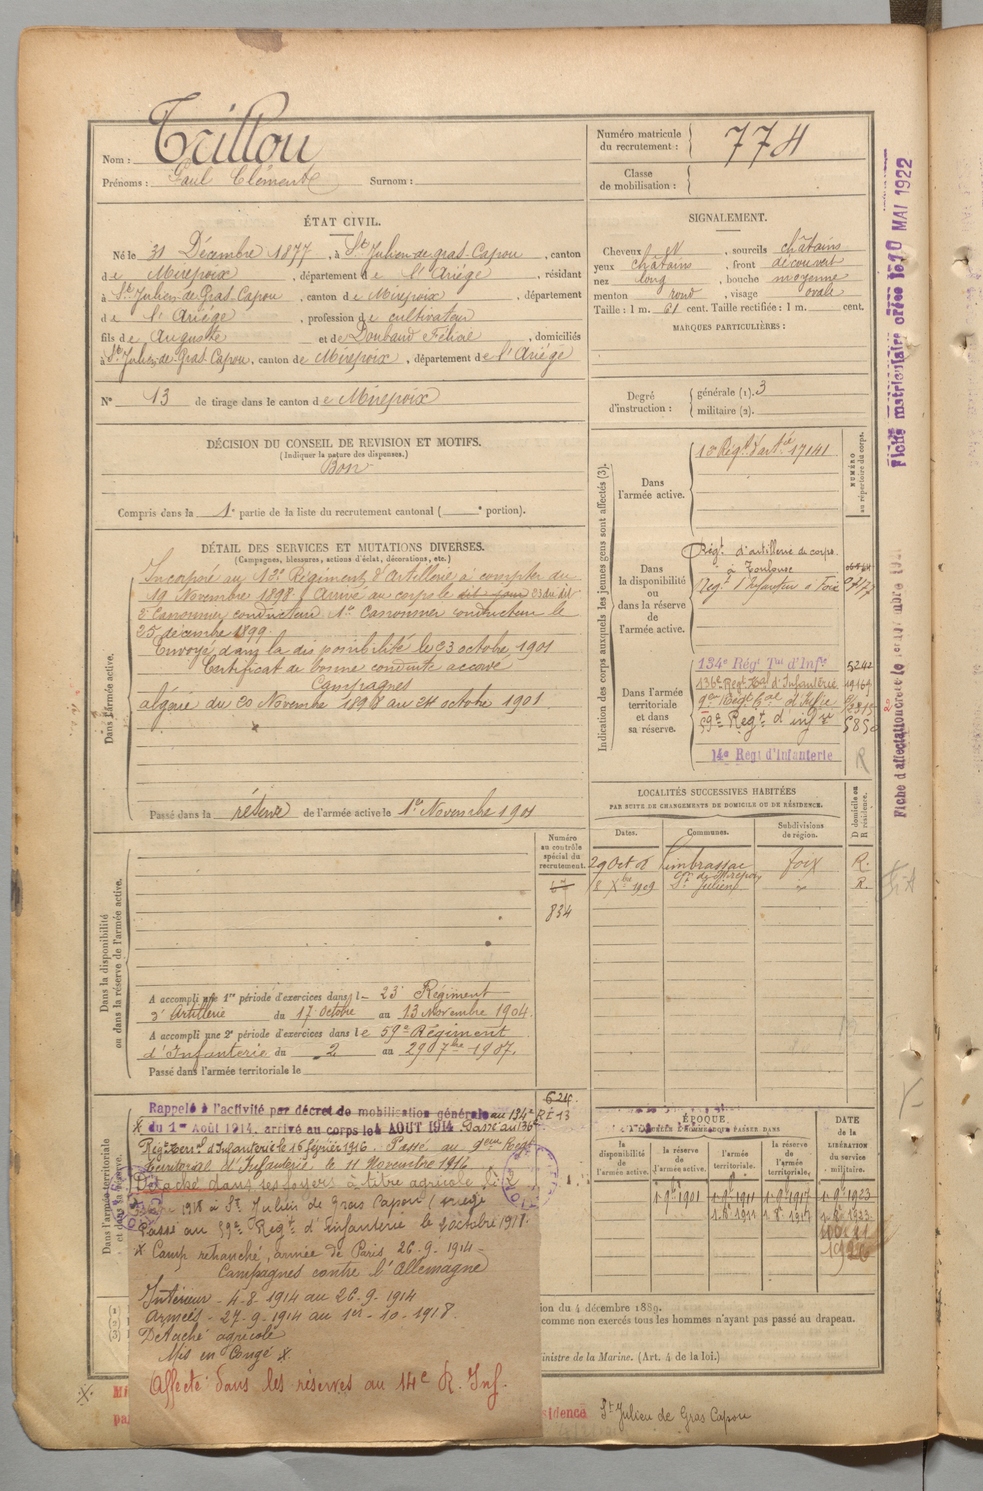 Nom : Trillou
Prénoms : Paul Clément Surnom :
Numéro matricule du recrutement : 774
Classe de mobilisation :
ÉTAT CIVIL.
Né le 31 Décembre 1877, à St Julien de gras-Capou, canton
de Mirepoix, département de l'Ariège, résidant
à St Julien-de-Gras-Capou, canton de Mirepoix, département
de l'Ariège, profession de cultivateur
fils de Auguste et de Doubaud Félicie, domiciliés
à St Julien-de-Gras-Capou, canton de Mirepoix, département de l'Ariège
N° 13 de tirage dans le canton de Mirepoix
SIGNALEMENT.
Cheveux N, sourcils châtains
yeux châtains, front découvert
nez long, bouche moyenne
menton rond, visage ovale
Taille : 1 m. 61 cent. Taille rectifiée : 1 m. cent.
MARQUES PARTICULIÈRES :
Degré d'instruction : générale (1). 3
militaire (2).
DÉCISION DU CONSEIL DE REVISION ET MOTIFS.
(Indiquer la nature des dispenses.)
Bon
Compris dans la 1e partie de la liste du recrutement cantonal ( e portion).
DÉTAIL DES SERVICES ET MUTATIONS DIVERSES.
(Campagnes, blessures, actions d'éclat, décorations, etc.)
Dans l'armée active.
Incorporé au 13e Régiment d'Artillerie à compter du
19 Novembre 1898. Arrivé au corps le dit jour 23 du dit
2e Canonnier conducteur 1er Canonnier conducteur le
25 décembre 1899
Envoyé dans la disponibilité le 23 octobre 1901
Certificat de bonne conduite accordé
Campagnes
algérie du 20 Novembre 1898 au 24 octobre 1901
Passé dans la réserve de l'armée active le 1er Novembre 1901
Indication des corps auxquels les jeunes gens sont affectés (3).
NUMÉRO au répertoire du corps.
Dans l'armée active.
13e Régt d'art.ie 17141
Dans la disponibilité ou dans la réserve de l'armée active.
Régt d'artillerie de corps
à Toulouse
Régt d'Infanterie à Foix
Dans l'armée territoriale et dans sa réserve.
134e Régt Tal d'Infie 5242
136e Regt Tal d'Infanterie
9eme Regt Tal d'Infie
59e Regt d'infie
14e Regt d'Infanterie
R
LOCALITÉS SUCCESSIVES HABITÉES
PAR SUITE DE CHANGEMENTS DE DOMICILE OU DE RÉSIDENCE.
Dates. Communes. Subdivisions de région. D domicile ou R résidence.
Limbrassac Foix R.
8 Xbre 1909 St Julien R.
Dans la disponibilité ou dans la réserve de l'armée active.
Numéro au contrôle spécial du recrutement.
834
A accompli une 1re période d'exercices dans le 23e Régiment
d'Artillerie du 17 Octobre au 13 Novembre 1904.
A accompli une 2e période d'exercices dans le 59e Régiment
d'Infanterie du 2 au 29 07bre 1907.
Passé dans l'armée territoriale le
Dans l'armée territoriale et dans sa réserve.
Rappelé à l'activité par décret de mobilisation générale au 134e
du 1er Août 1914, arrivé au corps le 4 AOUT 1914 Passé au 136e
Régt Terrial d'Infanterie le 16 février 1916. Passé au 9eme Regt
Territorial d'Infanterie le 11 Novembre 1916
Détaché dans ses foyers à titre agricole
1918 à St Julien de Gras Capou (Ariège
Passé au 59e Regt d'Infanterie le 1 octobre 1918.
x Camp retranché, armée de Paris 26-9-1914 -
Campagnes contre l'Allemagne
Intérieur - 4-8-1914 au 26-9-1914
Armées - 27-9-1914 au 1er-10-1918.
Détaché agricole
Mis en Congé x
Affecté dans les réserves au 14e R. Inf.
ÉPOQUE
la disponibilité de l'armée active. la réserve de l'armée active. l'armée territoriale. la réserve de l'armée territoriale.
DATE de la LIBÉRATION du service militaire.
1 9bre 1901 1 9bre 1911 1 9bre 1917 1 9bre 1923
ion du 4 décembre 1889.
comme non exercés tous les hommes n'ayant pas passé au drapeau.
inistre de la Marine. (Art. 4 de la loi.)
sidence St Julien de Gras Capou